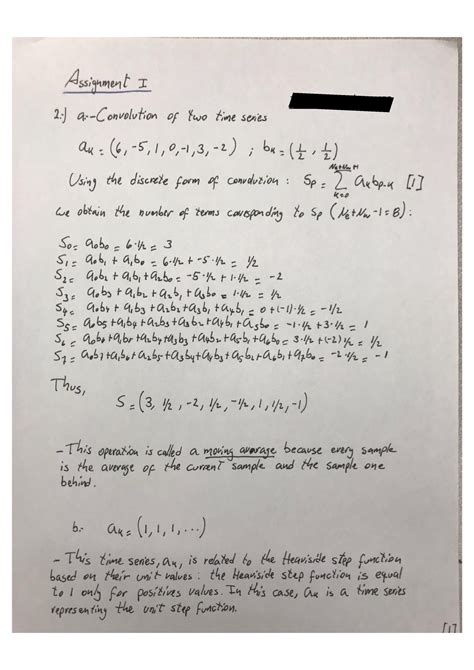 Assignment I
2.) a.- Convolution of two time series
aₖ = (6, -5, 1, 0, -1, 3, -2) ; bₖ = (1/2, 1/2)
Using the discrete form of convolution : Sp = Σ aₖbp-ₖ [1]
k=0
we obtain the number of terms corresponding to Sp (Nb+Nw-1=8):
S0 = a0b0 = 6·1/2 = 3
S1 = a0b1 + a1b0 = 6·1/2 + -5·1/2 = 1/2
S2 = a0b2 + a1b1 + a2b0 = -5·1/2 + 1·1/2 = -2
S3 = a0b3 + a1b2 + a2b1 + a3b0 = 1·1/2 = 1/2
S4 = a0b4 + a1b3 + a2b2 + a3b1 + a4b1 = 0 + (-1)·1/2 = -1/2
S5 = a0b5 + a1b4 + a2b3 + a3b2 + a4b1 + a5b0 = -1·1/2 + 3·1/2 = 1
S6 = a0b6 + a1b5 + a2b4 + a3b3 + a4b2 + a5b1 + a6b0 = 3·1/2 + (-2)1/2 = 1/2
S7 = a0b7 + a1b6 + a2b5 + a3b4 + a4b3 + a5b2 + a6b1 + a7b0 = -2·1/2 = -1
Thus,
S = (3, 1/2, -2, 1/2, -1/2, 1, 1/2, -1)
- This operation is called a moving average because every sample
is the average of the current sample and the sample one
behind.
b.- aₖ = (1, 1, 1, ...)
- This time series, aₖ, is related to the Heaviside step function
based on their unit values : the Heaviside step function is equal
to 1 only for positives values. In this case, aₖ is a time series
representing the unit step function.
[1]